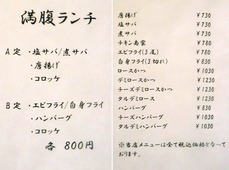 満腹ランチ
A定 ・塩サバ/煮サバ
・唐揚げ
・コロッケ
B定 ・エビフライ/白身フライ
・ハンバーグ
・コロッケ
各 800円
唐揚げ ￥730
塩サバ ￥730
煮サバ ￥730
チキン南蛮 ￥780
エビフライ(3尾) ￥780
白身フライ(3切れ) ￥830
ロースかつ ￥1030
デミロースかつ ￥1230
チーズロースかつ ￥1230
タルデミロース ￥1230
ハンバーグ ￥830
チーズハンバーグ ￥1030
タルデミハンバーグ ￥1030
※当店メニューは全て税込価格となって
おります。